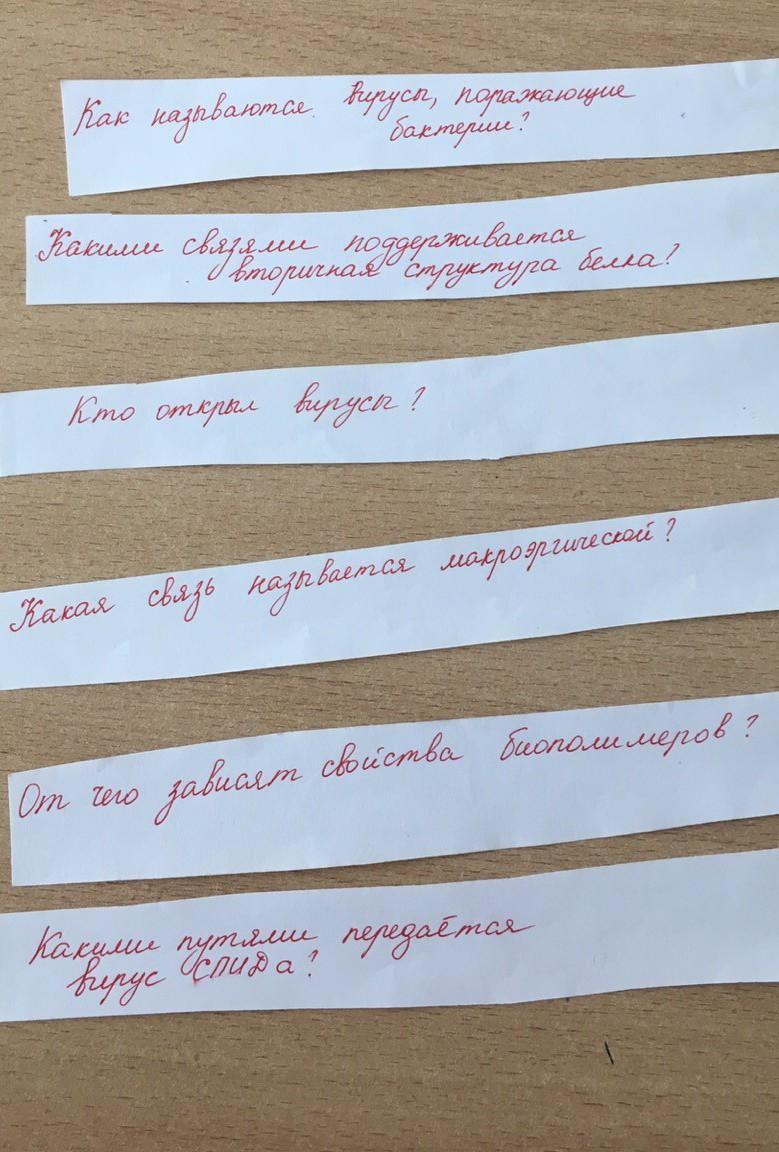 Как называются вирусы, поражающие
бактерии?
Какими связями поддерживается
вторичная структура белка?
Кто открыл вирусы?
Какая связь называется макроэргической?
От чего зависят свойства биополимеров?
Какими путями передаётся
вирус СПИДа?